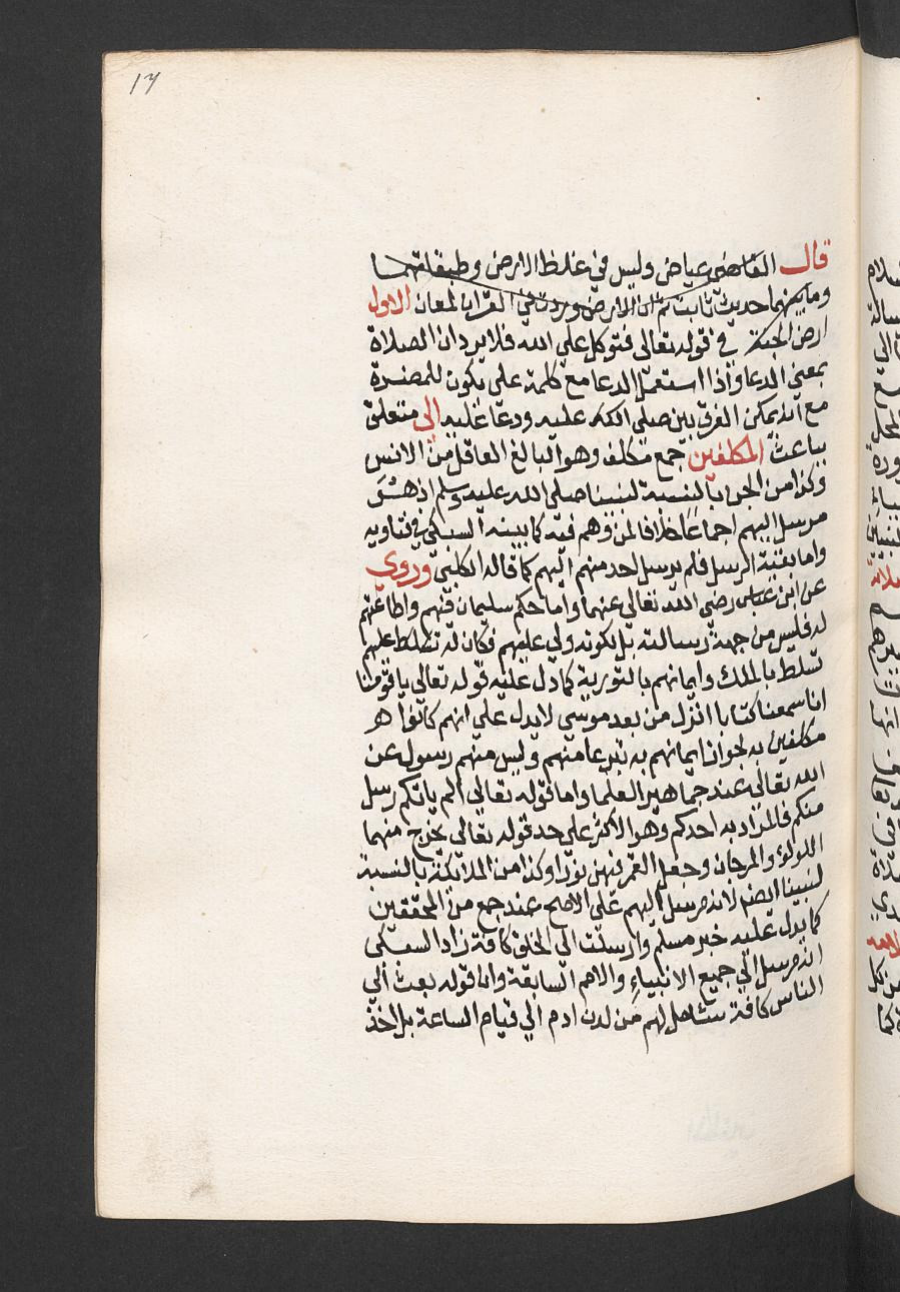 17
قال القاضى عياض وليس في غلظ الارض وطبقاتهما
وما بينهما حديث ثابت ثم ان الارض وردت في القران لمعان الاول
ارض الجنة في قوله تعالى فتوكل على الله فلا يرد ان الصلاة
بمعنى الدعا واذا استعمل الدعا مع كلمة على تكون للمضرة
مع انه يمكن الفرق بين صلى الله عليه ودعا عليه الى متعلق
بباعث المكلفين جمع مكلف وهو البالغ العاقل من الانس
وكذا من الجن بالنسبة لنبينا صلى الله عليه وسلم اذ هو
مرسل اليهم اجماعا خلافا لمن وهم فيه كما بينه السبكى في فتاويه
واما بقية الرسل فلم يرسل احد منهم اليهم كما قاله الكلبى وروى
عن ابن عباس رضى الله تعالى عنهما واما حكم سليمان فيهم واطاعتهم
له فليس من جهة رسالته بل لكونه ولى عليهم فكان له تسلط عليهم
تسلط بالملك وايمانهم بالتورية كما دل عليه قوله تعالى يا قومنا
انا سمعنا كتابا انزل من بعد موسى لا يدل على انهم كانوا
مكلفين به لجواز ايمانهم به تبرعا منهم وليس منهم رسول عن
الله تعالى عند جماهير العلما واما قوله تعالى الم ياتكم رسل
منكم فالمراد به احدكم وهو الاكثر على حد قوله تعالى يخرج منهما
اللولؤ والمرجان وجعل القمر فيهن نورا وكذا من الملائكة بالنسبة
لنبينا ايضا لانه مرسل اليهم على الاصح عند جمع من المحققين
كما يدل عليه خبر مسلم وارسلت الى الخلق كافة زاد السبكى
انه مرسل الى جميع الانبياء والامم السابقة وان قوله بعثت الى
الناس كافة شامل لهم من لدن ادم الى قيام الساعة بل اخذ